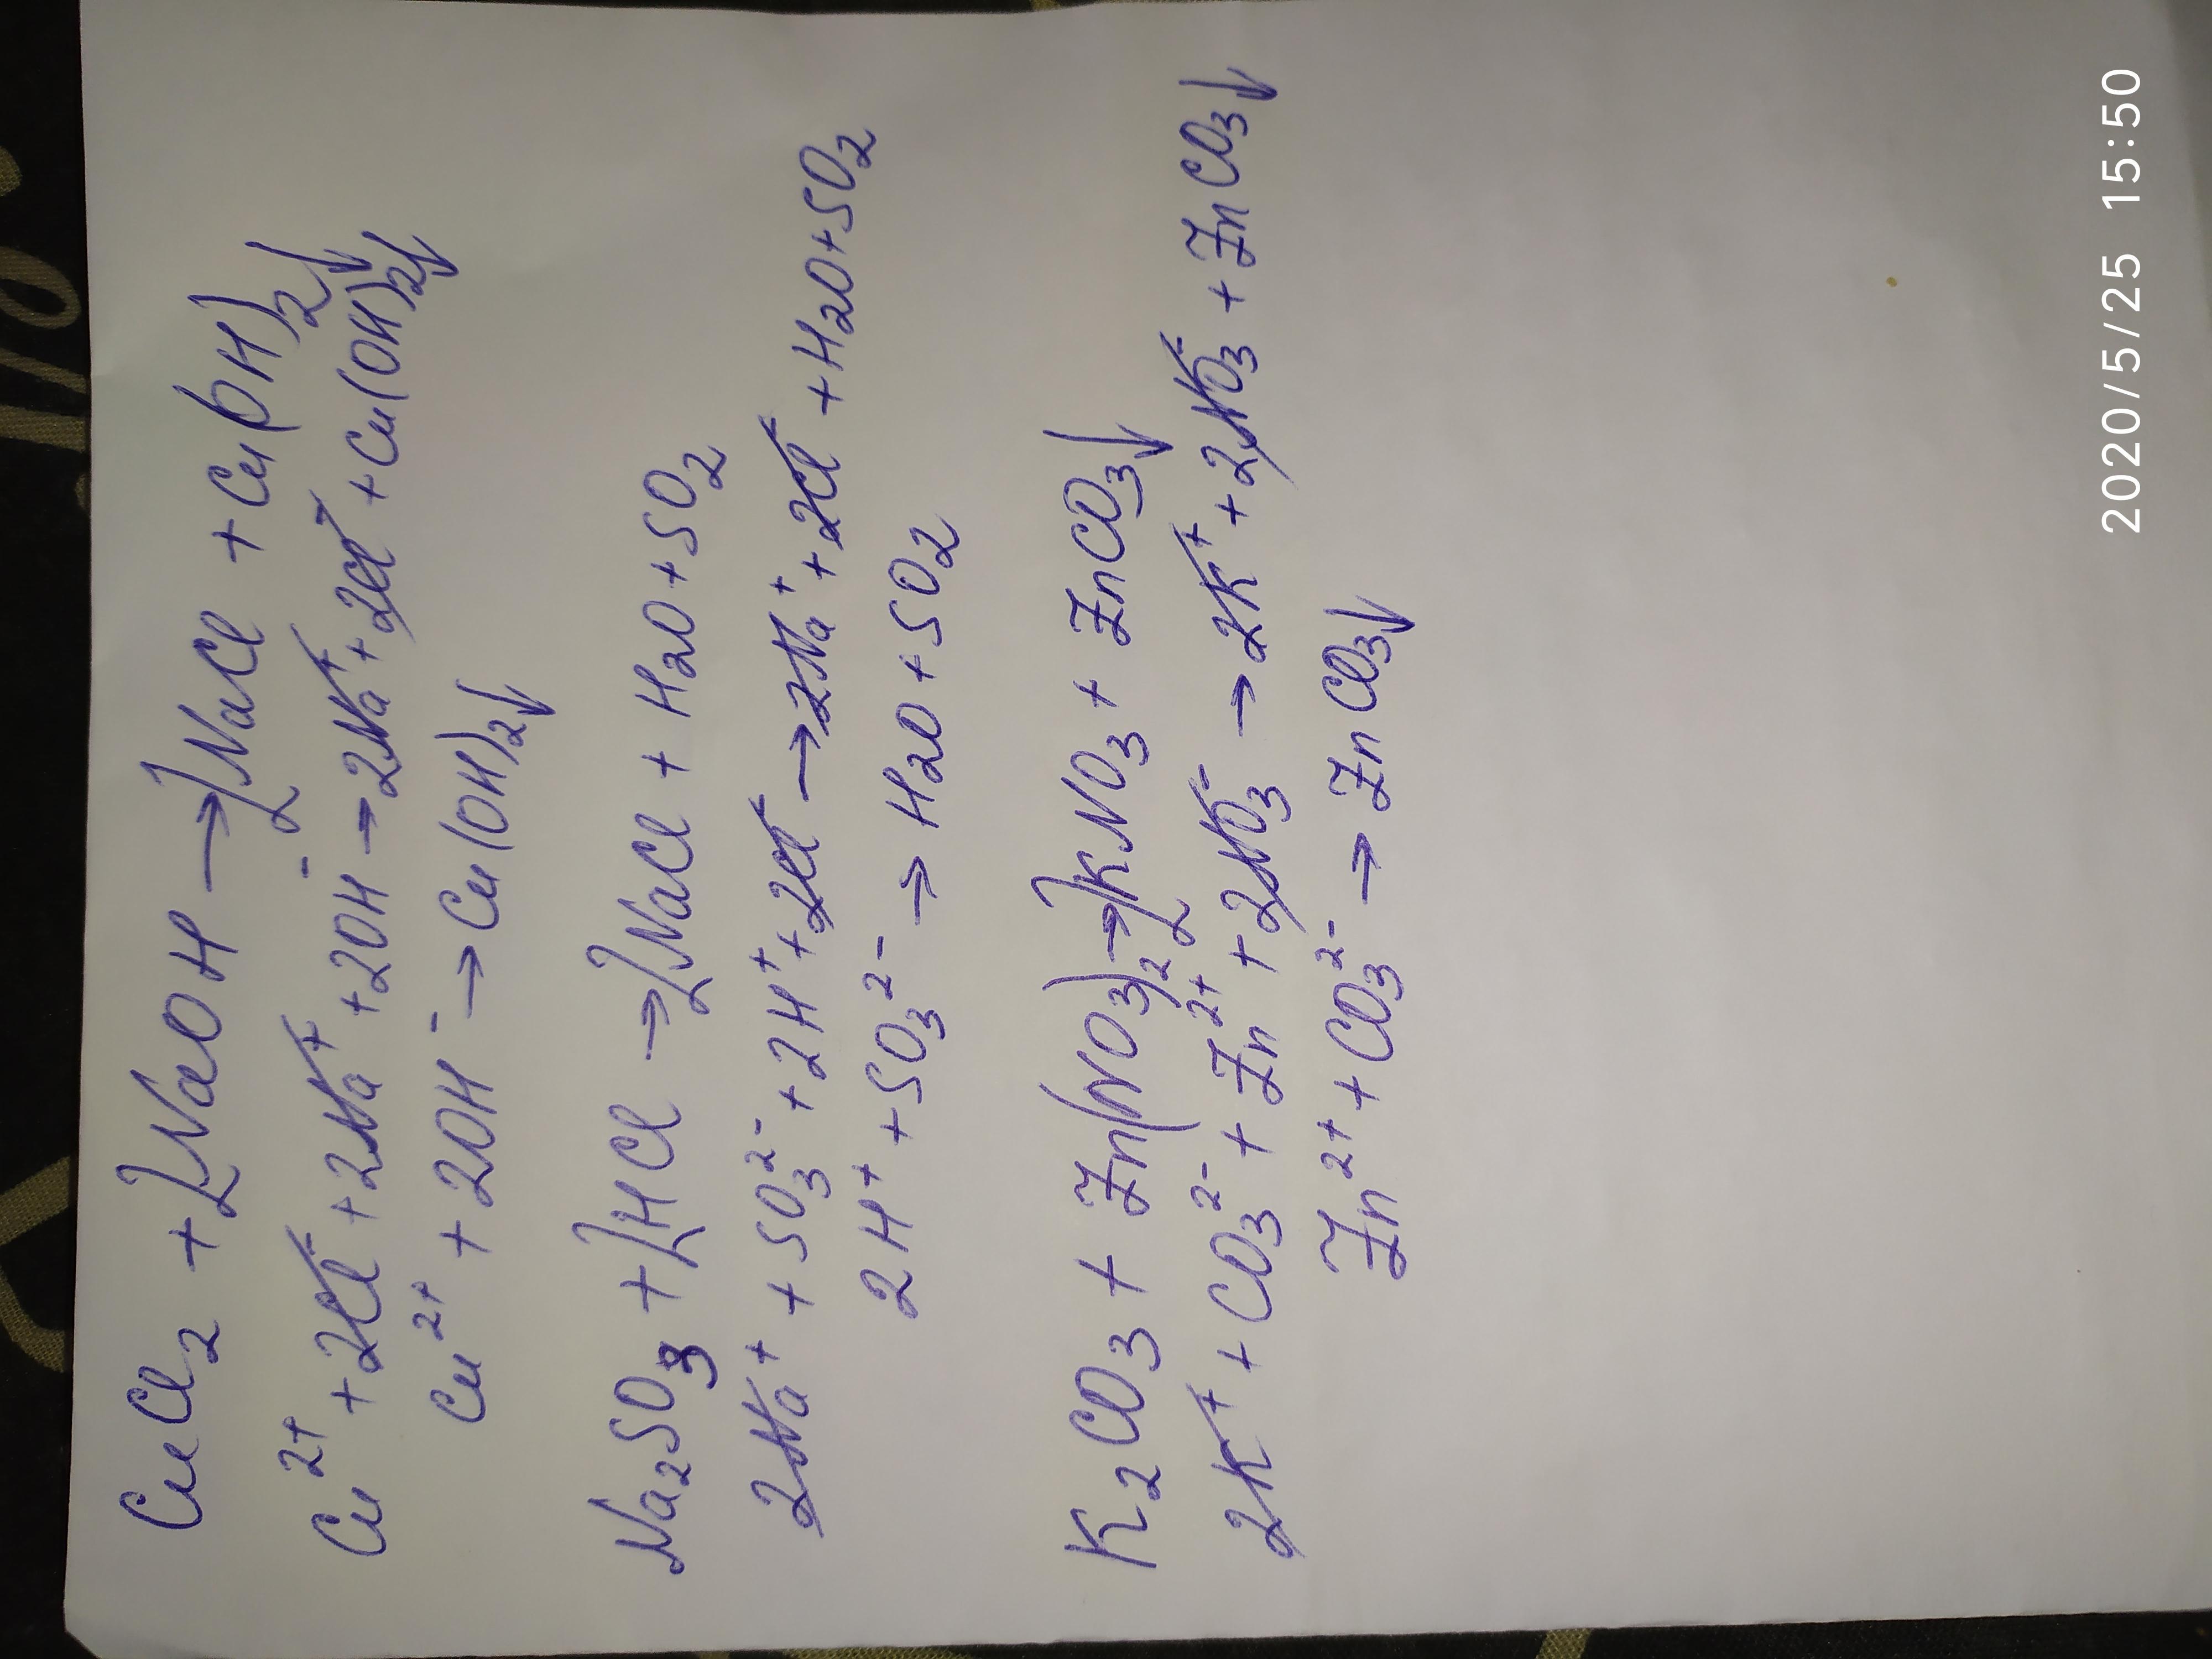 CuCl2 + 2NaOH → 2NaCl + Cu(OH)2↓
Cu2+ + 2Cl- + 2Na+ + 2OH- → 2Na+ + 2Cl- + Cu(OH)2↓
Cu2+ + 2OH- → Cu(OH)2↓
Na2SO3 + 2HCl → 2NaCl + H2O + SO2
2Na+ + SO3 2- + 2H+ + 2Cl- → 2Na+ + 2Cl- + H2O + SO2
2H+ + SO3 2- → H2O + SO2
K2CO3 + Zn(NO3)2 → 2KNO3 + ZnCO3↓
2K+ + CO3 2- + Zn2+ + 2NO3- → 2K+ + 2NO3- + ZnCO3↓
Zn2+ + CO3 2- → ZnCO3↓
2020/5/25 15:50